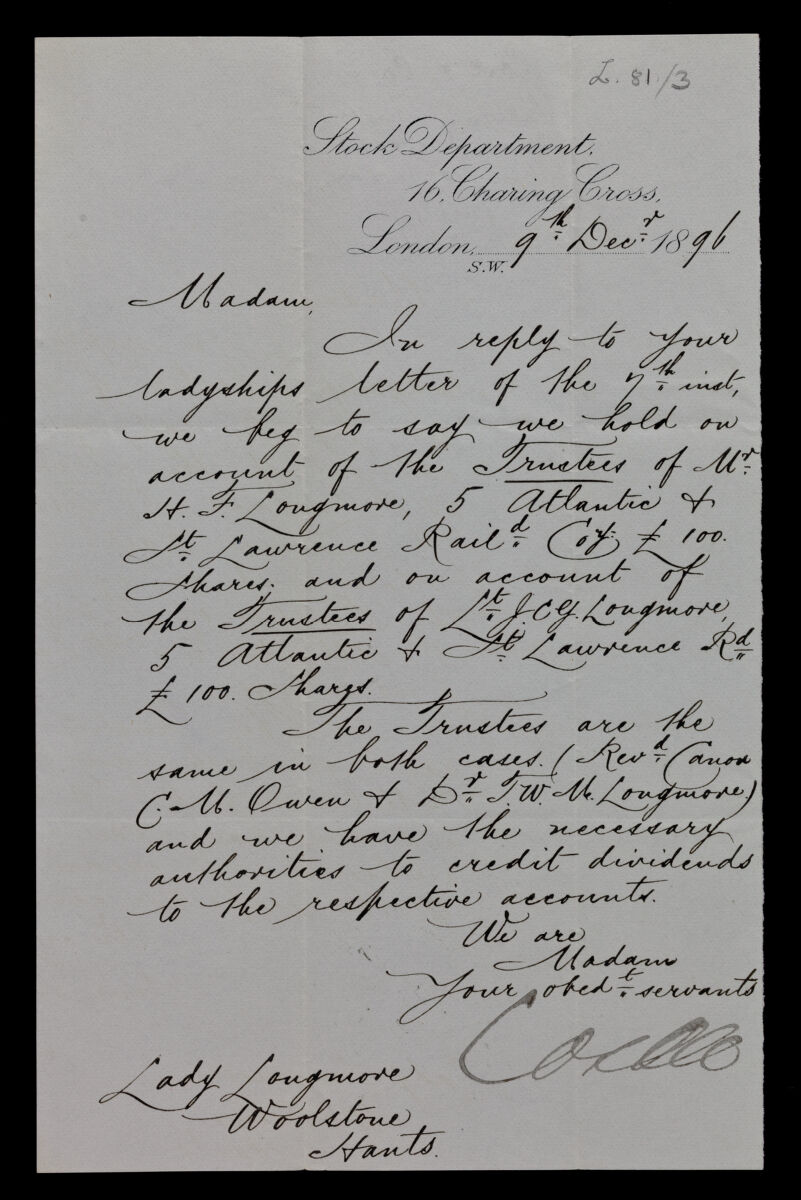 L. 81/3
Stock Department.
16, Charing Cross,
London, S.W. 9th Decr 1896
Madam,
In reply to your
ladyships letter of the 7th inst,
we beg to say we hold on
account of the Trustees of Mr
H. F. Longmore, 5 Atlantic &
St Lawrence Raild Coy £100.
Shares. and on account of
the Trustees of Lt J. C. G. Longmore,
5 Atlantic & St Lawrence Rd
£100. Shares.
The Trustees are the
same in both cases. (Revd Canon
C. M. Owen & Dr T. W. M. Longmore)
and we have the necessary
authorities to credit dividends
to the respective accounts.
We are
Madam
Your obedt servants
Lady Longmore
Woolstone
Hants.